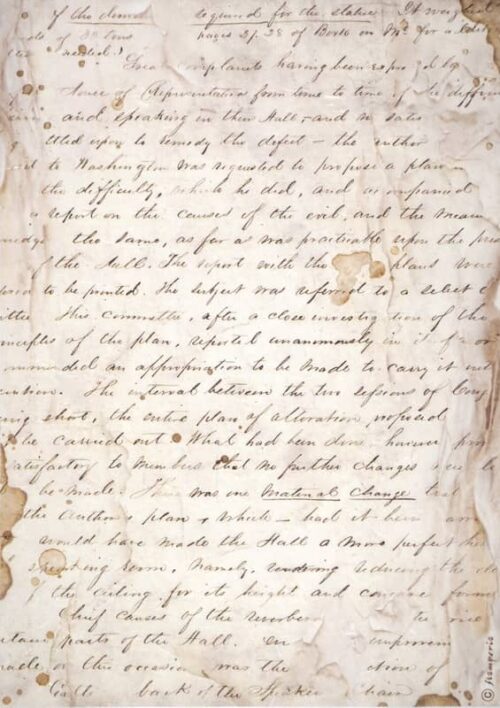 of the required for the statue. It weighed
of 30 tons pages 27, 28 of Book on
needed.) Great complaints having been expressed by
House of Representatives from time to time of the difficulty
and speaking in their Hall - and no satis
ttled upon to remedy the defect - the author
to Washington was requested to propose a plan
the difficulty, which he did, and accompanied
a report on the causes of the evil, and the means
the same, as far as was practicable upon the
of the Hall. The report with the plans were
to be printed. The subject was referred to a select c
ittee This committee, after a close investigation of the
nciples of the plan, reported unanimously in
mmended an appropriation to be made to carry it into
cution. The interval between the two sessions of Cong
ing short, the entire plan of alteration, proposed
be carried out. What had been done however
atisfactory to members that no further changes
be made. There was one Material Change that
the Author's plan, which - had it been
would have made the Hall a more perfect
speaking room, Namely, rendering reducing the
of the ceiling for its height and concave form
Chief causes of the reverbera
parts of the Hall. improvem
made on this occasion was the of
back of the Speaker Chair
© stamperia